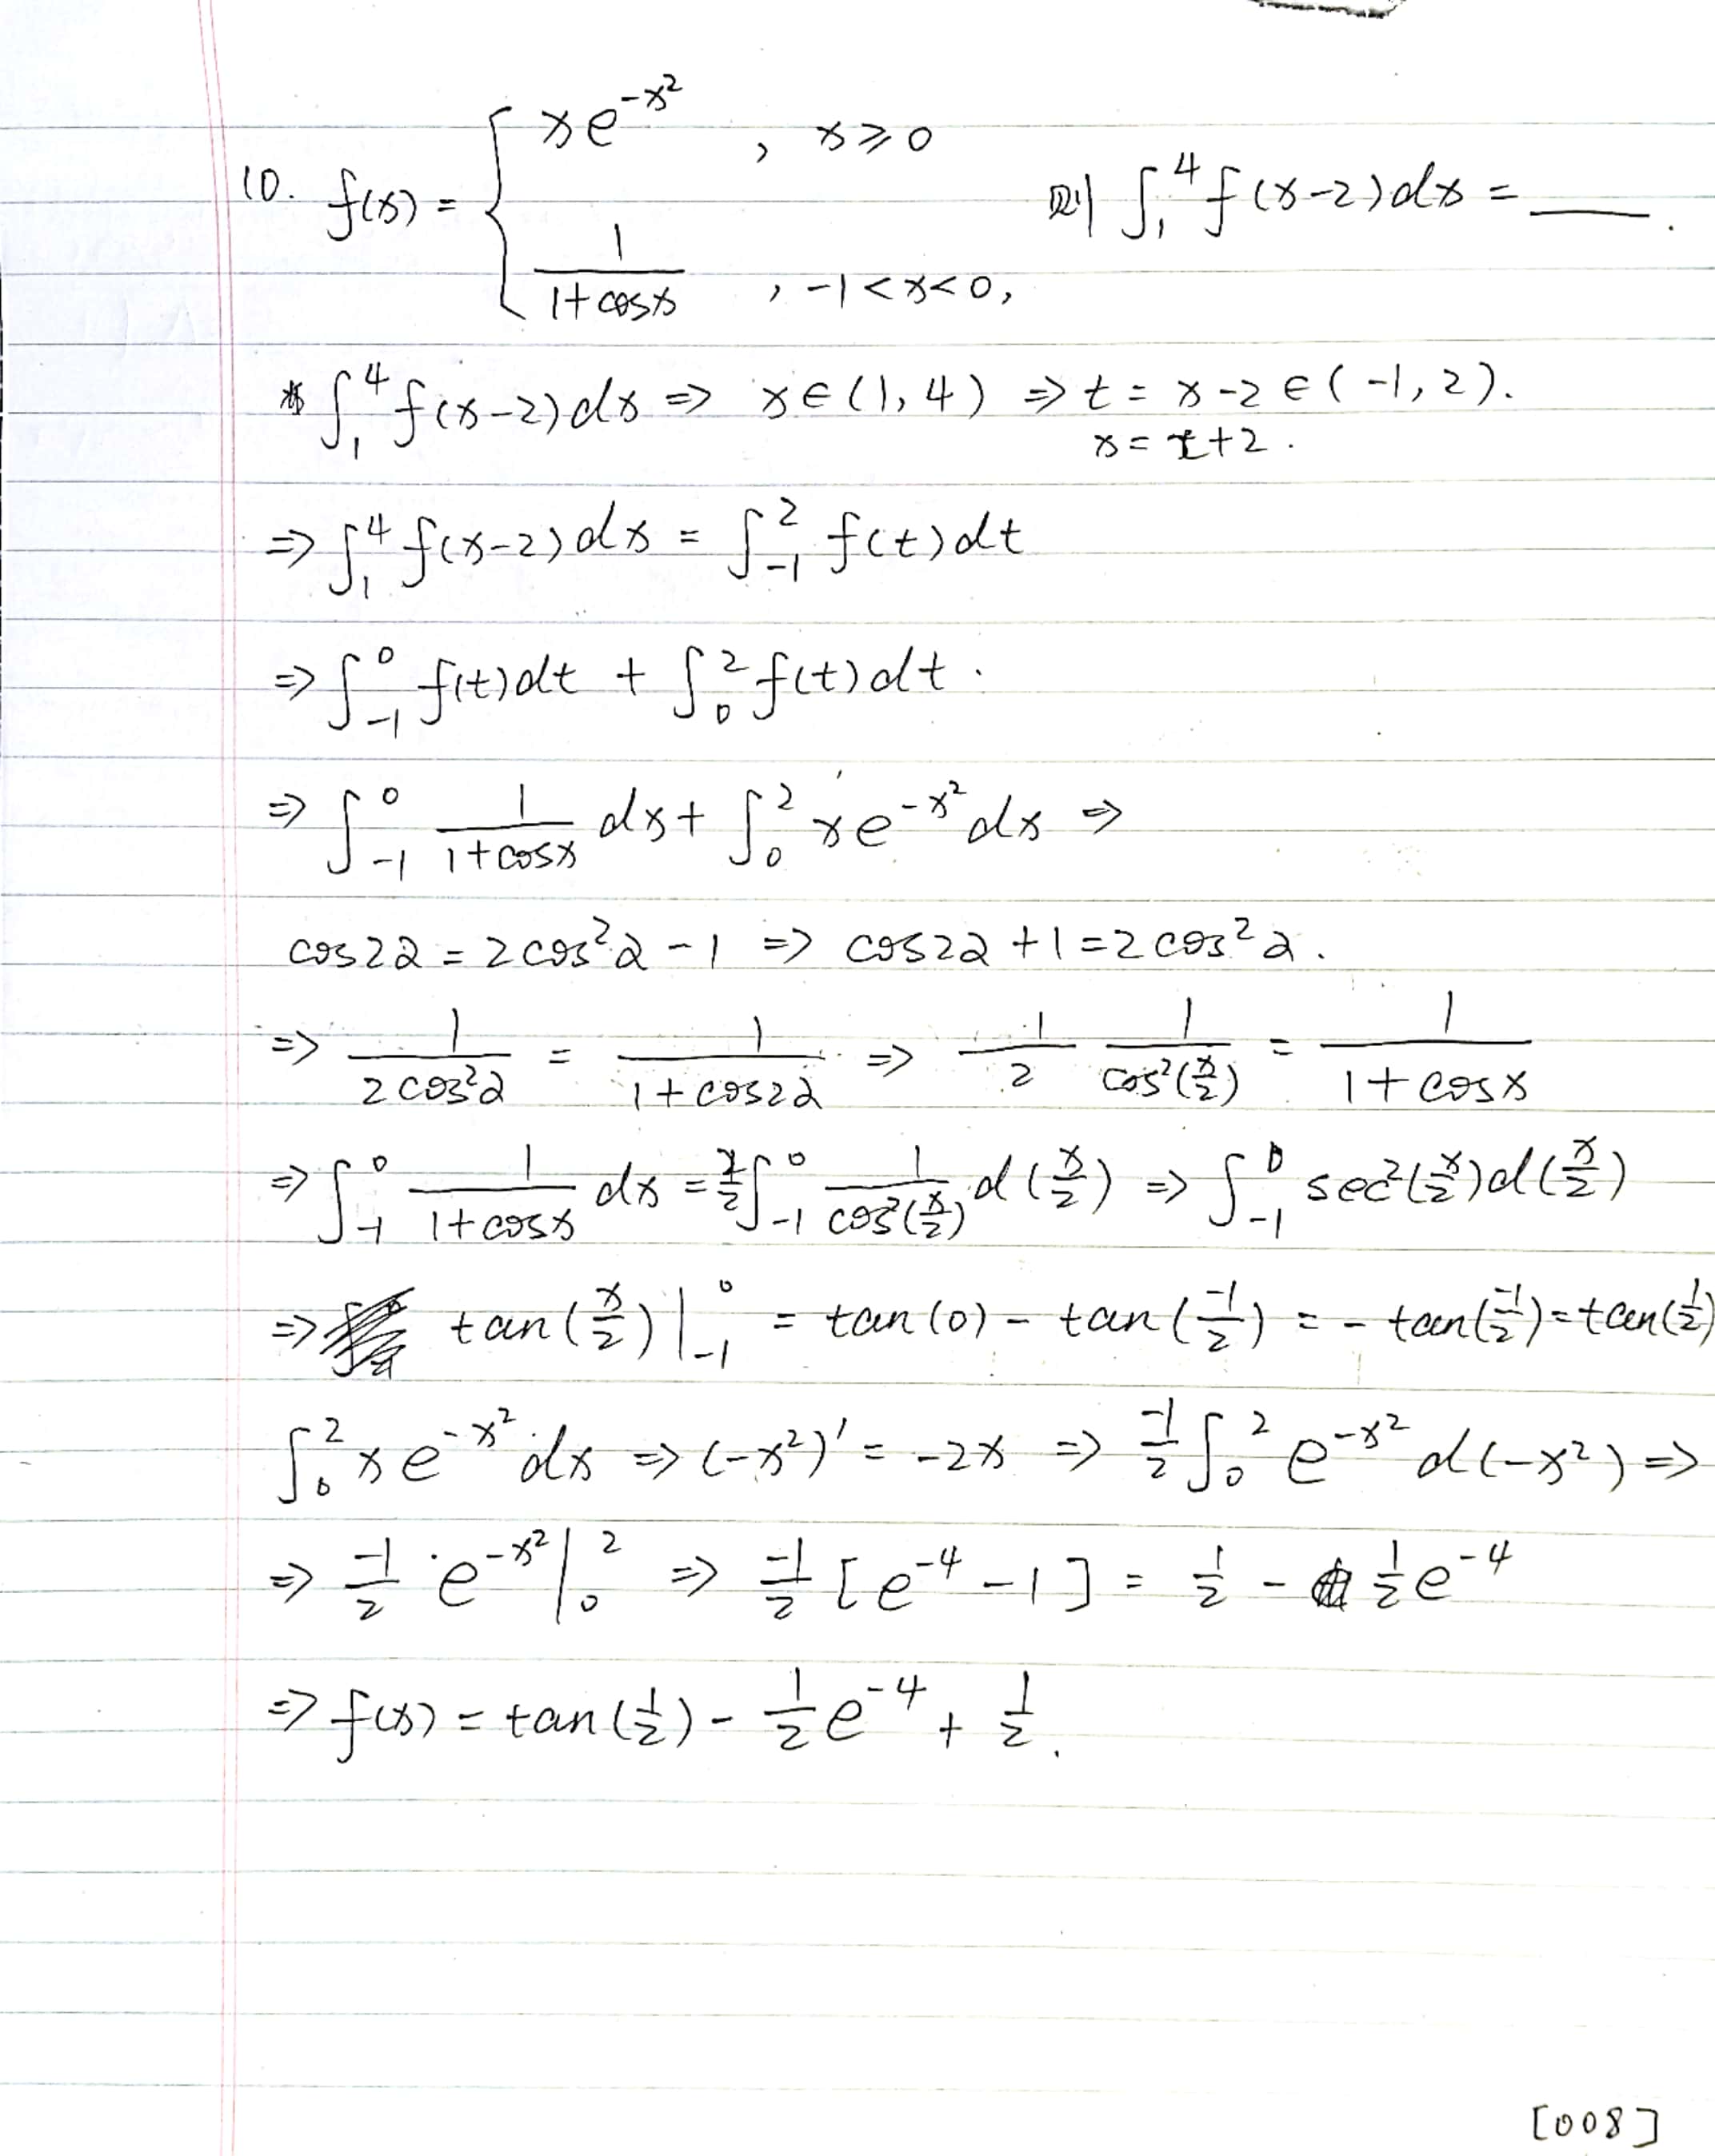 10. f(x) = { xe^{-x²} , x ≥ 0
1/(1+cosx) , -1<x<0, 则 ∫₁⁴ f(x-2)dx = ____.
∫₁⁴ f(x-2)dx ⇒ x∈(1,4) ⇒ t = x-2 ∈(-1,2).
x = t+2.
⇒ ∫₁⁴ f(x-2)dx = ∫₋₁² f(t)dt
⇒ ∫₋₁⁰ f(t)dt + ∫₀² f(t)dt.
⇒ ∫₋₁⁰ 1/(1+cosx) dx + ∫₀² xe^{-x²}dx ⇒
cos2α = 2cos²α - 1 ⇒ cos2α + 1 = 2cos²α.
⇒ 1/(2cos²α) = 1/(1+cos2α) ⇒ 1/2 1/cos²(x/2) = 1/(1+cosx)
⇒ ∫₋₁⁰ 1/(1+cosx) dx = 2/2 ∫₋₁⁰ 1/cos²(x/2) d(x/2) ⇒ ∫₋₁⁰ sec²(x/2)d(x/2)
⇒ tan(x/2)|₋₁⁰ = tan(0) - tan(-1/2) = - tan(-1/2) = tan(1/2)
∫₀² xe^{-x²}dx ⇒ (-x²)' = -2x ⇒ -1/2 ∫₀² e^{-x²} d(-x²) ⇒
⇒ -1/2 · e^{-x²}|₀² ⇒ -1/2 [e^{-4} - 1] = 1/2 - 1/2 e^{-4}
⇒ f(x) = tan(1/2) - 1/2 e^{-4} + 1/2.
[008]